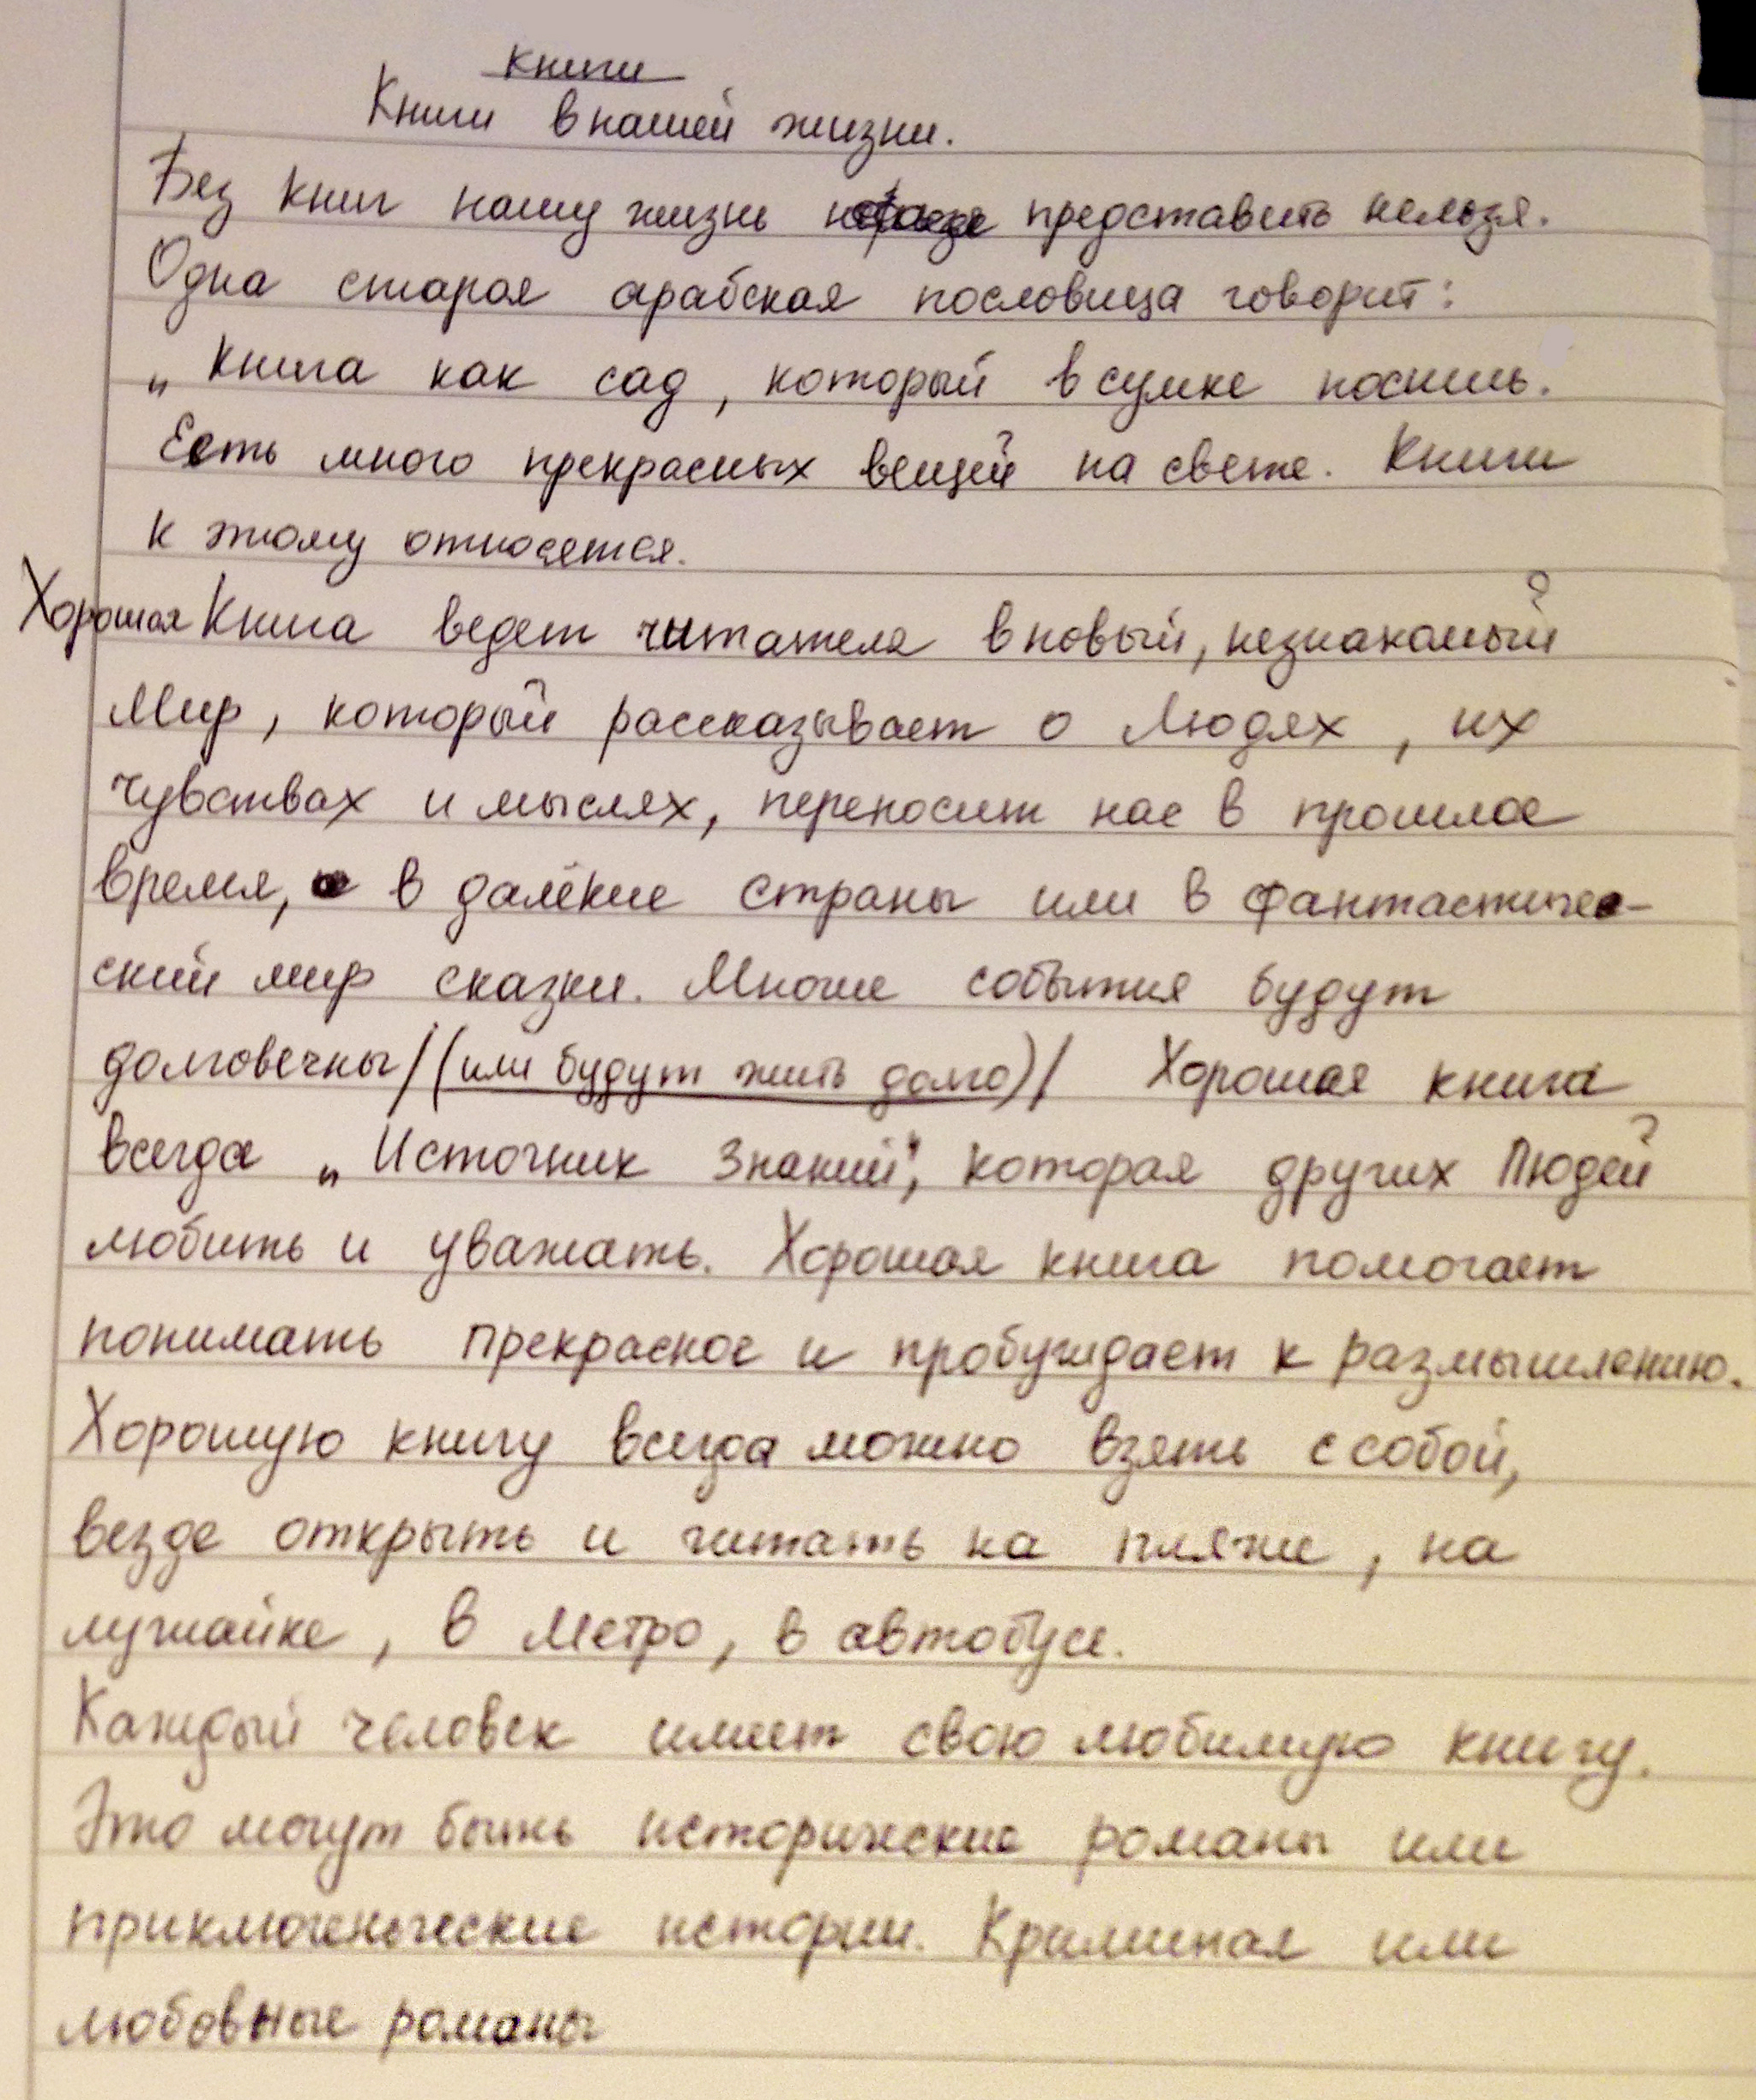 книги
Книги в нашей жизни.
Без книг нашу жизнь представить нельзя.
Одна старая арабская пословица говорит:
„Книга как сад, который в сумке носишь.
Есть много прекрасных вещей на свете. Книги
к этому относятся.
Хорошая Книга ведет читателя в новый, незнакомый
Мир, который рассказывает о Людях, их
чувствах и мыслях, переносит нас в прошлое
время, в далёкие страны или в фантастичес-
ский мир сказки. Многие события будут
долговечны/(или будут жить долго)/ Хорошая книга
всегда „Источник Знаний", которая других Людей
любить и уважать. Хорошая книга помогает
понимать прекрасное и пробуждает к размышлению.
Хорошую книгу всегда можно взять с собой,
везде открыть и читать на пляже, на
лужайке, в Метро, в автобусе.
Каждый человек имеет свою любимую книгу.
Это могут быть исторические романы или
приключенческие истории. Криминал или
любовные романы